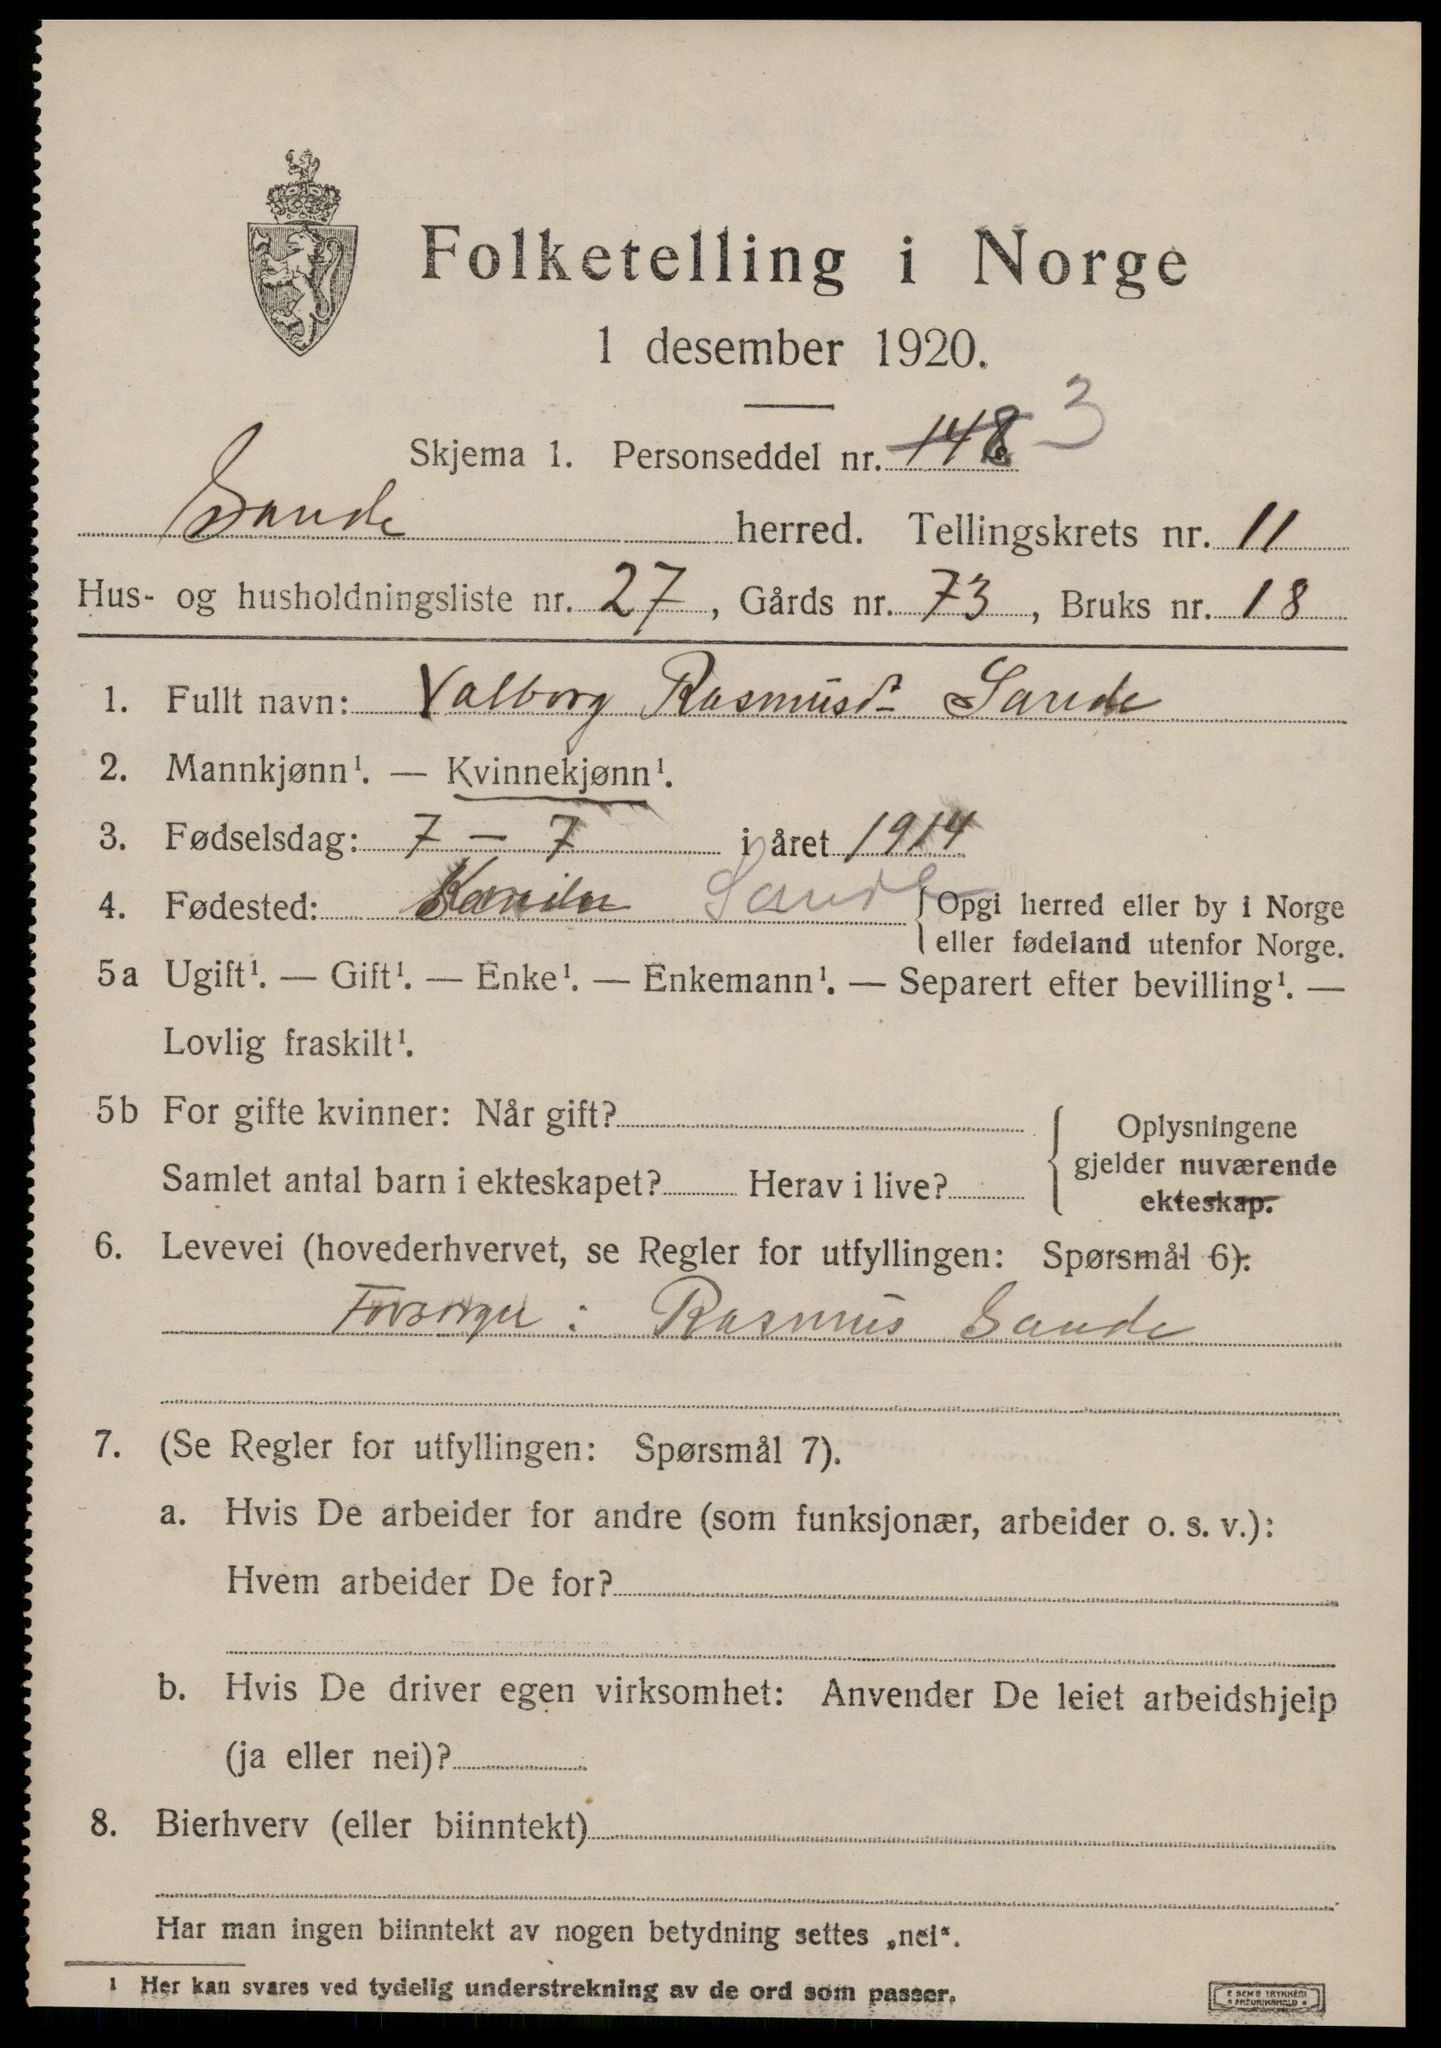 Folketelling i Norge
1 desember 1920.
Skjema 1. Personseddel nr. 148 3
Sande herred. Tellingskrets nr. 11
Hus- og husholdningsliste nr. 27, Gårds nr. 73, Bruks nr. 18
1. Fullt navn: Valborg Rasmusdr Sande
2. Mannkjønn¹. — Kvinnekjønn¹.
3. Fødselsdag: 7 – 7 i året 1914
4. Fødested: Sande { Opgi herred eller by i Norge
eller fødeland utenfor Norge.
5a Ugift¹. — Gift¹. — Enke¹. — Enkemann¹. — Separert efter bevilling¹. —
Lovlig fraskilt¹.
5b For gifte kvinner: Når gift?
Samlet antal barn i ekteskapet? Herav i live?
{ Oplysningene
gjelder nuværende
ekteskap.
6. Levevei (hovederhvervet, se Regler for utfyllingen: Spørsmål 6):
Forsørger: Rasmus Sande
7. (Se Regler for utfyllingen: Spørsmål 7).
a. Hvis De arbeider for andre (som funksjonær, arbeider o. s. v.):
Hvem arbeider De for?
b. Hvis De driver egen virksomhet: Anvender De leiet arbeidshjelp
(ja eller nei)?
8. Bierhverv (eller biinntekt)
Har man ingen biinntekt av nogen betydning settes „nei".
¹ Her kan svares ved tydelig understrekning av de ord som passer.